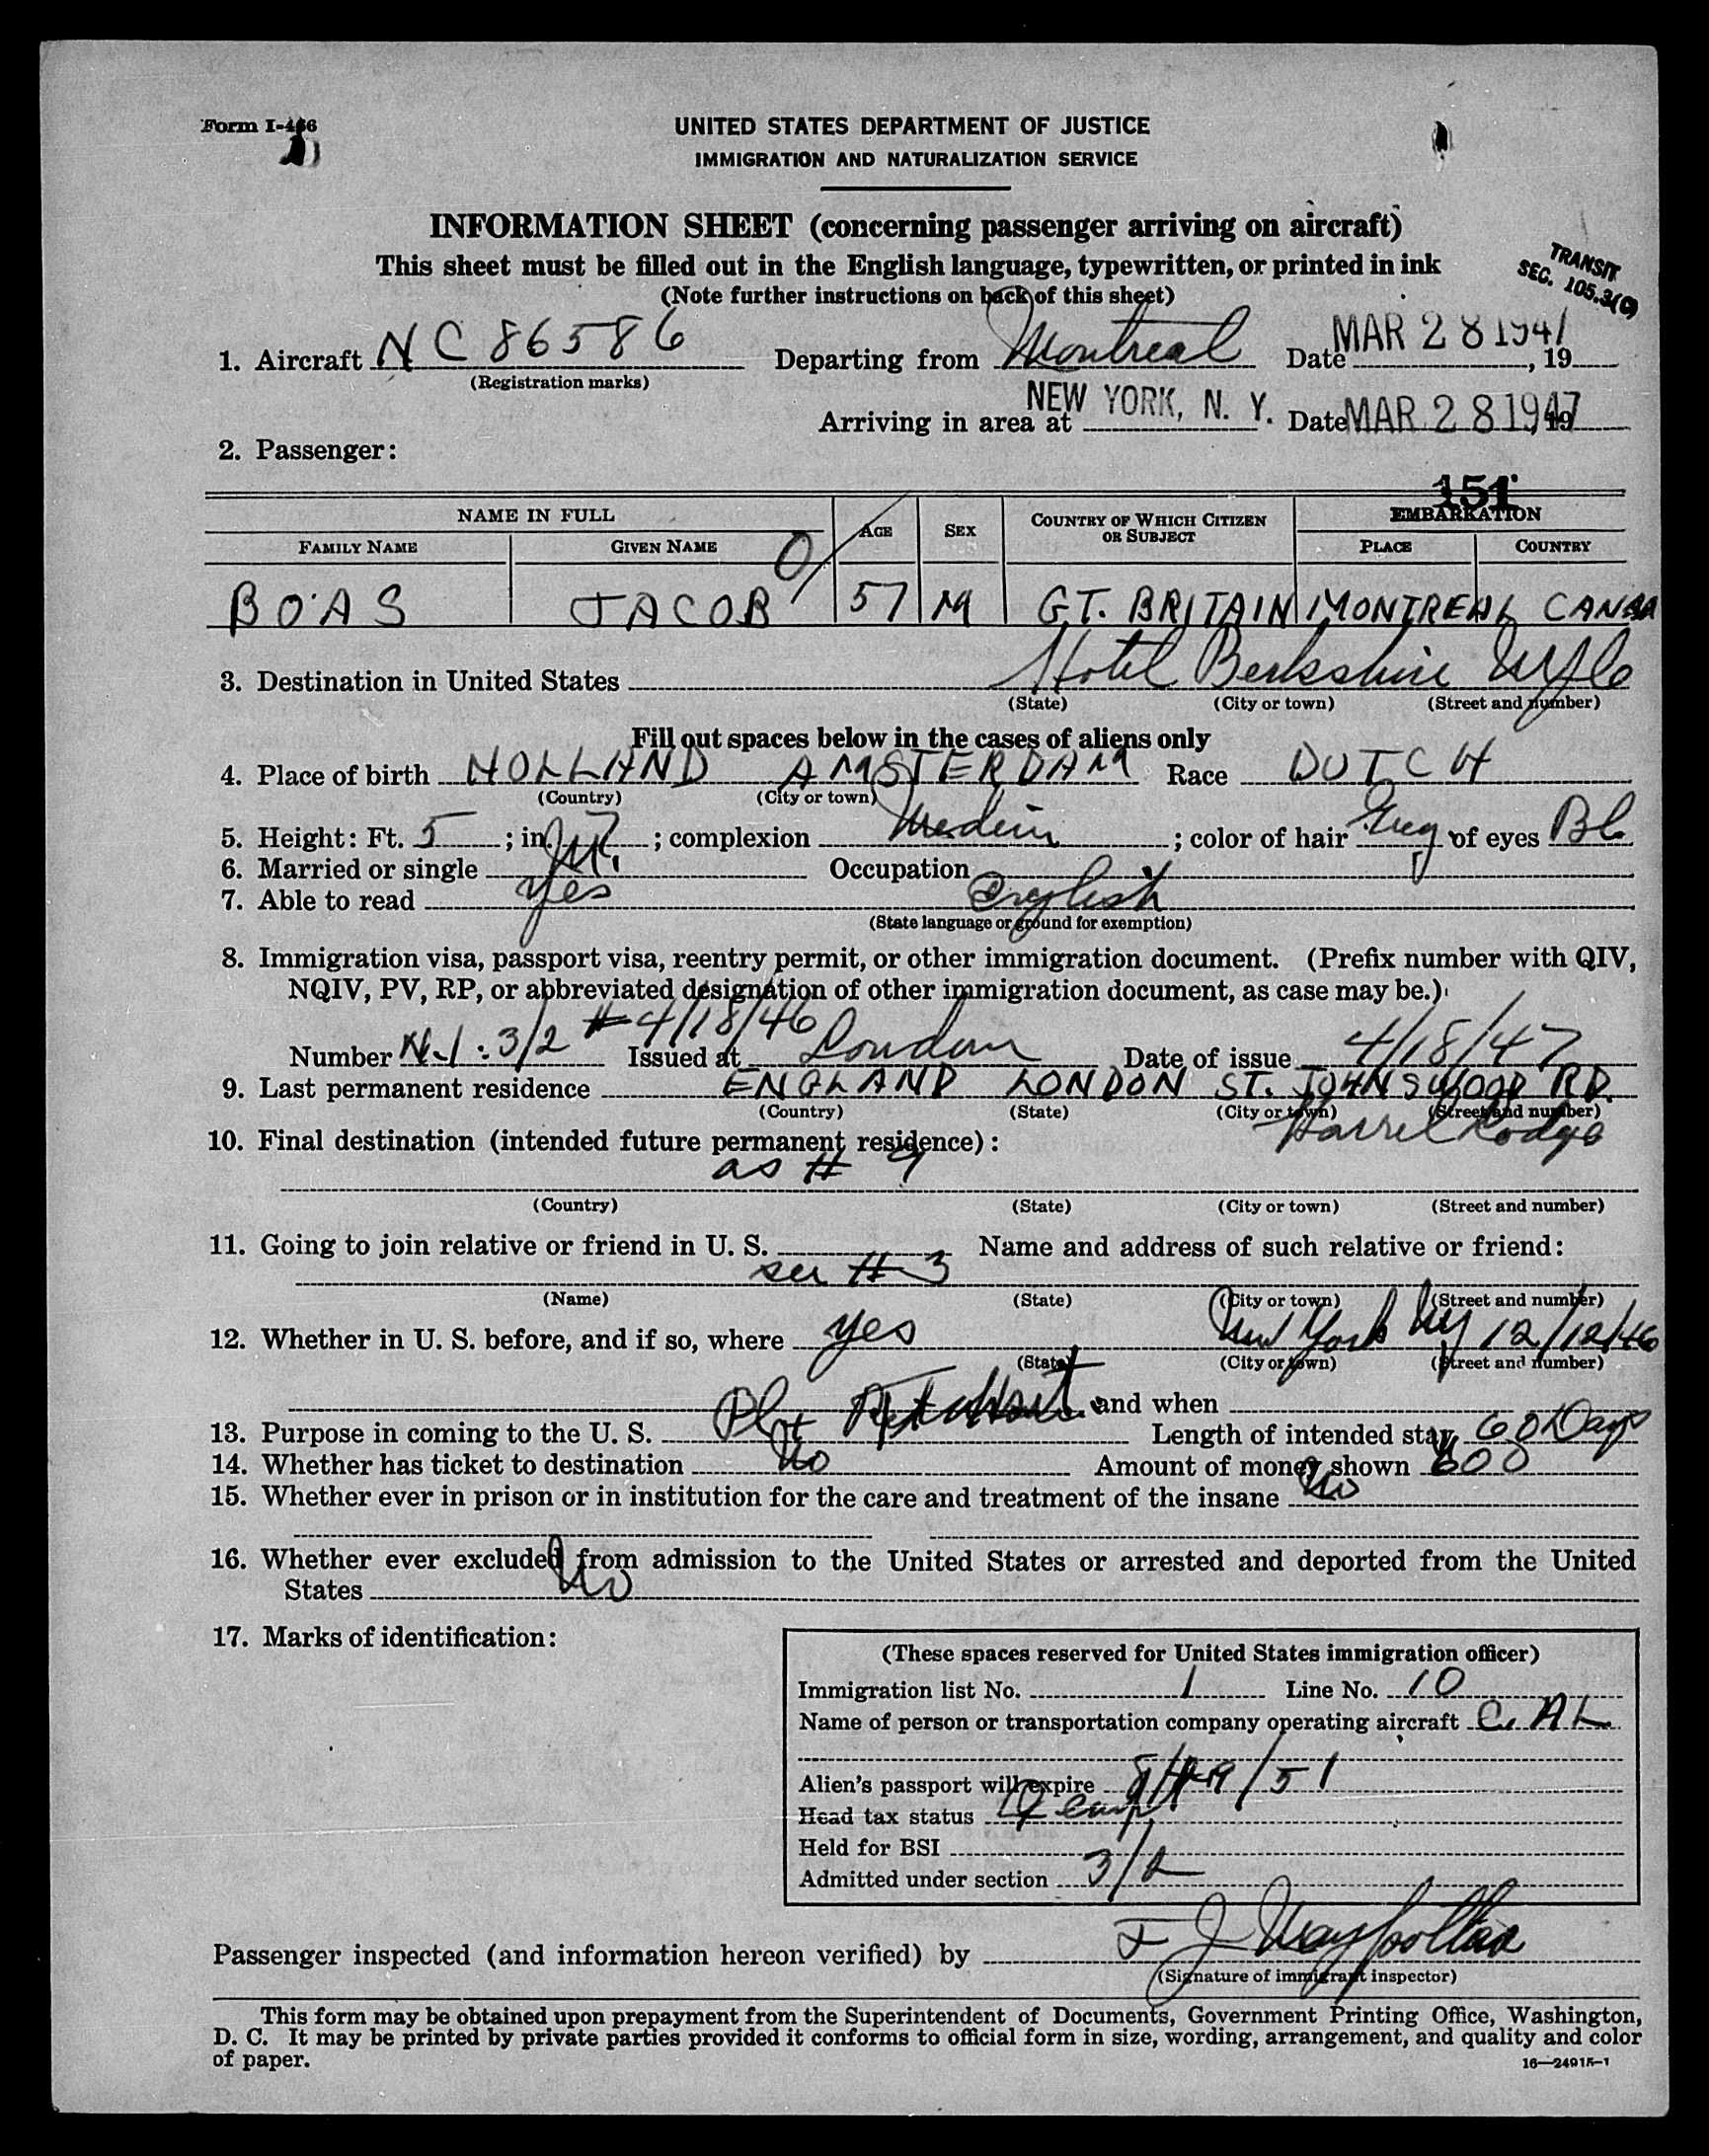 Form I-466
UNITED STATES DEPARTMENT OF JUSTICE
IMMIGRATION AND NATURALIZATION SERVICE
INFORMATION SHEET (concerning passenger arriving on aircraft)
This sheet must be filled out in the English language, typewritten, or printed in ink
(Note further instructions on back of this sheet)
TRANSIT
SEC. 105.3(C)
1. Aircraft NC 86586 Departing from Montreal Date MAR 28 1947, 19
(Registration marks)
Arriving in area at NEW YORK, N. Y. Date MAR 28 1947 19
2. Passenger:
151
NAME IN FULL AGE SEX COUNTRY OF WHICH CITIZEN OR SUBJECT EMBARKATION
FAMILY NAME GIVEN NAME PLACE COUNTRY
BOAS JACOB 57 M GT. BRITAIN MONTREAL CANADA
3. Destination in United States Hotel Berkshire NYC
(State) (City or town) (Street and number)
Fill out spaces below in the cases of aliens only
4. Place of birth HOLLAND AMSTERDAM Race DUTCH
(Country) (City or town)
5. Height: Ft. 5; in. 7; complexion Medium; color of hair Grey of eyes Bl.
6. Married or single M. Occupation
7. Able to read yes English
(State language or ground for exemption)
8. Immigration visa, passport visa, reentry permit, or other immigration document. (Prefix number with QIV,
NQIV, PV, RP, or abbreviated designation of other immigration document, as case may be.)
Number 3/2 # 4/18/46 Issued at London Date of issue 4/18/47
9. Last permanent residence ENGLAND LONDON ST. JOHNSWOOD RD.
(Country) (State) (City or town) (Street and number)
10. Final destination (intended future permanent residence): Lodge
as # 9
(Country) (State) (City or town) (Street and number)
11. Going to join relative or friend in U. S. Name and address of such relative or friend:
see # 3
(Name) (State) (City or town) (Street and number)
12. Whether in U. S. before, and if so, where yes New York NY 12/12/46
(State) (City or town) (Street and number)
and when
13. Purpose in coming to the U. S. Length of intended stay 60 Days
14. Whether has ticket to destination No Amount of money shown 600
15. Whether ever in prison or in institution for the care and treatment of the insane No
16. Whether ever excluded from admission to the United States or arrested and deported from the United
States No
17. Marks of identification:
(These spaces reserved for United States immigration officer)
Immigration list No. 1 Line No. 10
Name of person or transportation company operating aircraft C. A L
Alien's passport will expire 8/29/51
Head tax status
Held for BSI
Admitted under section 3/2
Passenger inspected (and information hereon verified) by
(Signature of immigrant inspector)
This form may be obtained upon prepayment from the Superintendent of Documents, Government Printing Office, Washington,
D. C. It may be printed by private parties provided it conforms to official form in size, wording, arrangement, and quality and color
of paper.
16—24915-1